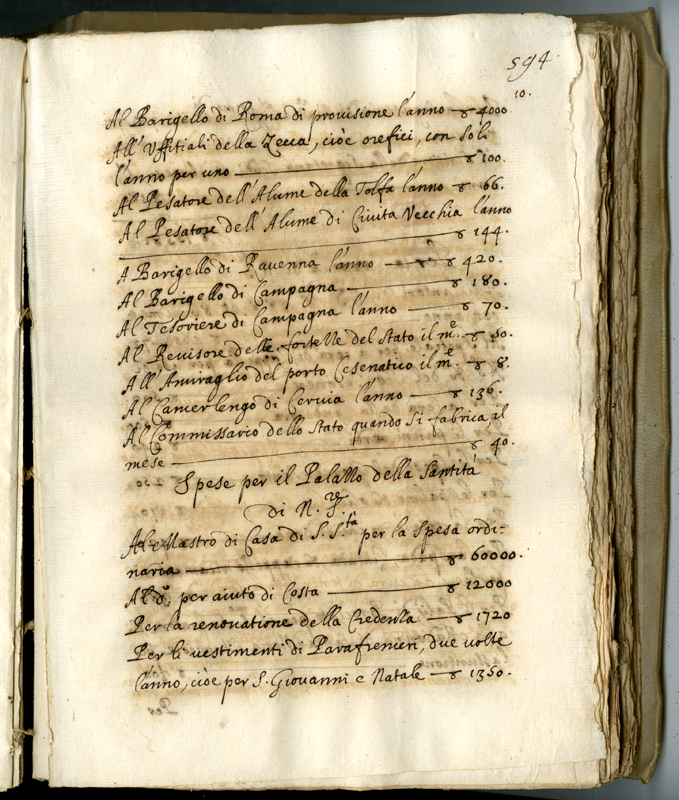 594
10.
Al Barigello di Roma di provisione l'anno — ∇ 4000
All' Uffitiali della Zecca, cioè orefici, con soli
l'anno per uno — ∇ 100.
Al Pesatore dell'Alume della Tolfa l'anno ∇ 66.
Al Pesatore dell'Alume di Civita Vecchia l'anno
— ∇ 144.
A Barigello di Ravenna l'anno — ∇ 420.
Al Barigello di Campagna — ∇ 180.
Al Tesoriere di Campagna l'anno — ∇ 70.
Al Revisore delle fortezze del stato il mẽ. ∇ 50.
All' Amiraglio del porto Cesenatico il mẽ. ∇ 8.
Al Camerlengo di Cervia l'anno — ∇ 136.
Al Commissario dello stato quando si fabrica, il
mese — ∇ 40.
Spese per il Palazzo della Santità
di N. Sre.
Al Mastro di Casa di S. Sta. per la spesa ordi:
naria — ∇ 60000.
Al d.° per aiuto di Costa — ∇ 12000
Per la renovatione della Credenza — ∇ 1720
Per li vestimenti di Parafrenieri, due volte
l'anno, cioè per S. Giovanni e Natale — ∇ 1350.
Per